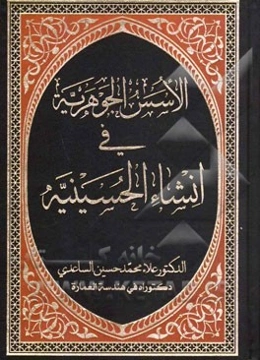 الأسس الجوهرية
في
انشاء الحسينيه
الدكتور علاء محمد حسين الساعدي
دكتوراه في هندسة العمارة